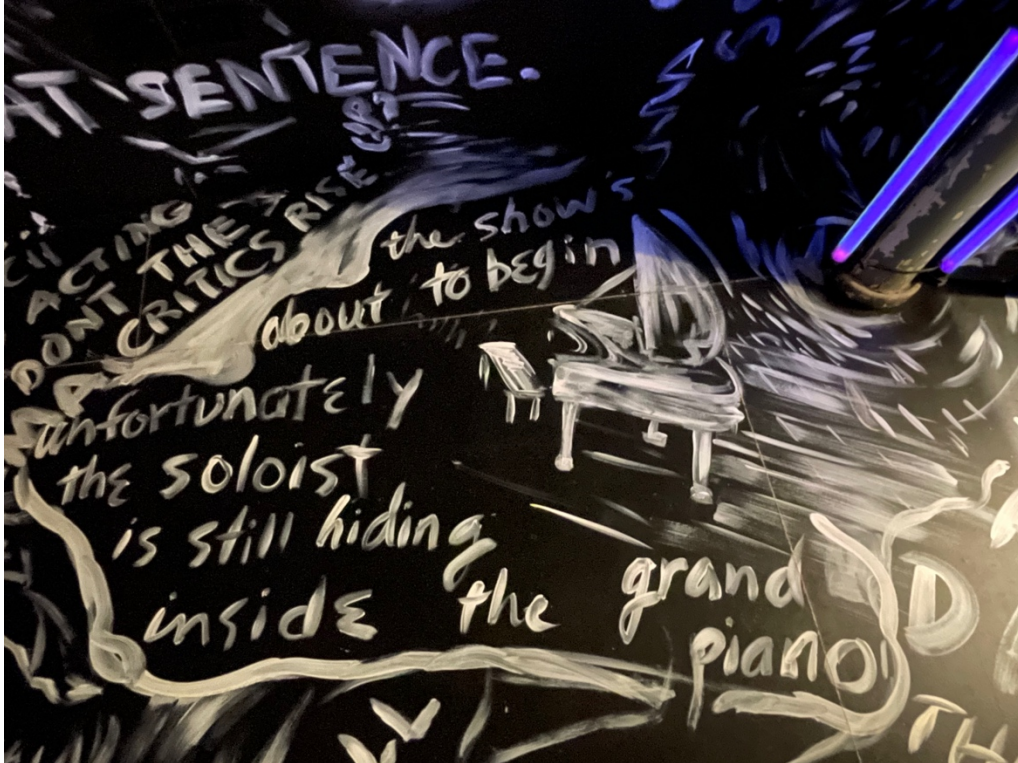 AT SENTENCE.
ACTING
DON'T THE
CRITICS RISE UP?
the show's
about to begin
unfortunately
the soloist
is still hiding
inside the grand
piano
D
Th